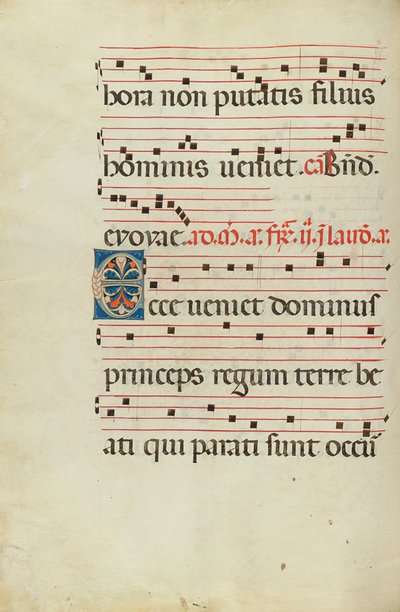 hora non putatis filius
hominis ueniet. cā Bn̄d̄.
evovae. ad.
Ecce ueniet dominus
princeps regum terre be
ati qui parati sunt occu